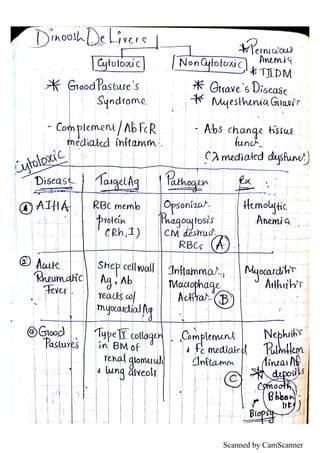 Dinoosh De Livera
* Pernicious Anemia
* TIIDM
Cytotoxic
Non Cytotoxic
* Good Pasture's Syndrome
* Grave's Disease
* Myesthenia Gravis
- Complement / Ab FcR mediated inflamm.
- Abs change tissue funct.
(λ mediated dysfunc)
Cytotoxic
Disease Target Ag Pathogen Ex
① AIHA RBC memb protein (Rh, I)
Opsonizat. Phagocytosis CM destruc. RBCs (A)
Hemolytic Anemia
② Acute Rheumatic Fever.
Strep cell wall Ag, Ab reacts w/ myocardial Ag
Inflammat., Macophage Activat. (B)
Myocarditis Arthritis
③ Good Pasture's
Type IV collagen in BM of renal glomeruli & lung alveoli
Complement & Fc mediated Inflamm (C)
Nephritis
Pulm Hem
Linear Ab
* deposits
(smooth,
Ribbon
like)
Biopsy
Scanned by CamScanner